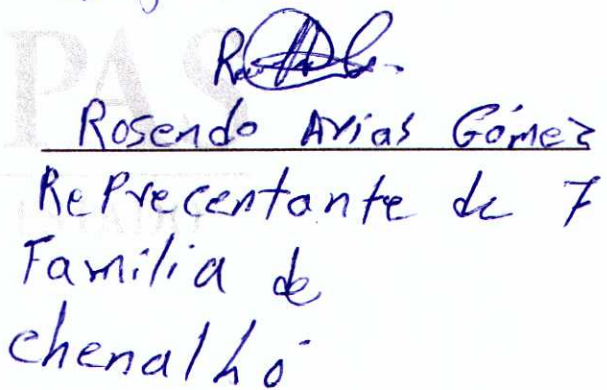 Rosendo Arias Gómez
RePrecentante de 7
Familia de
chenalhó